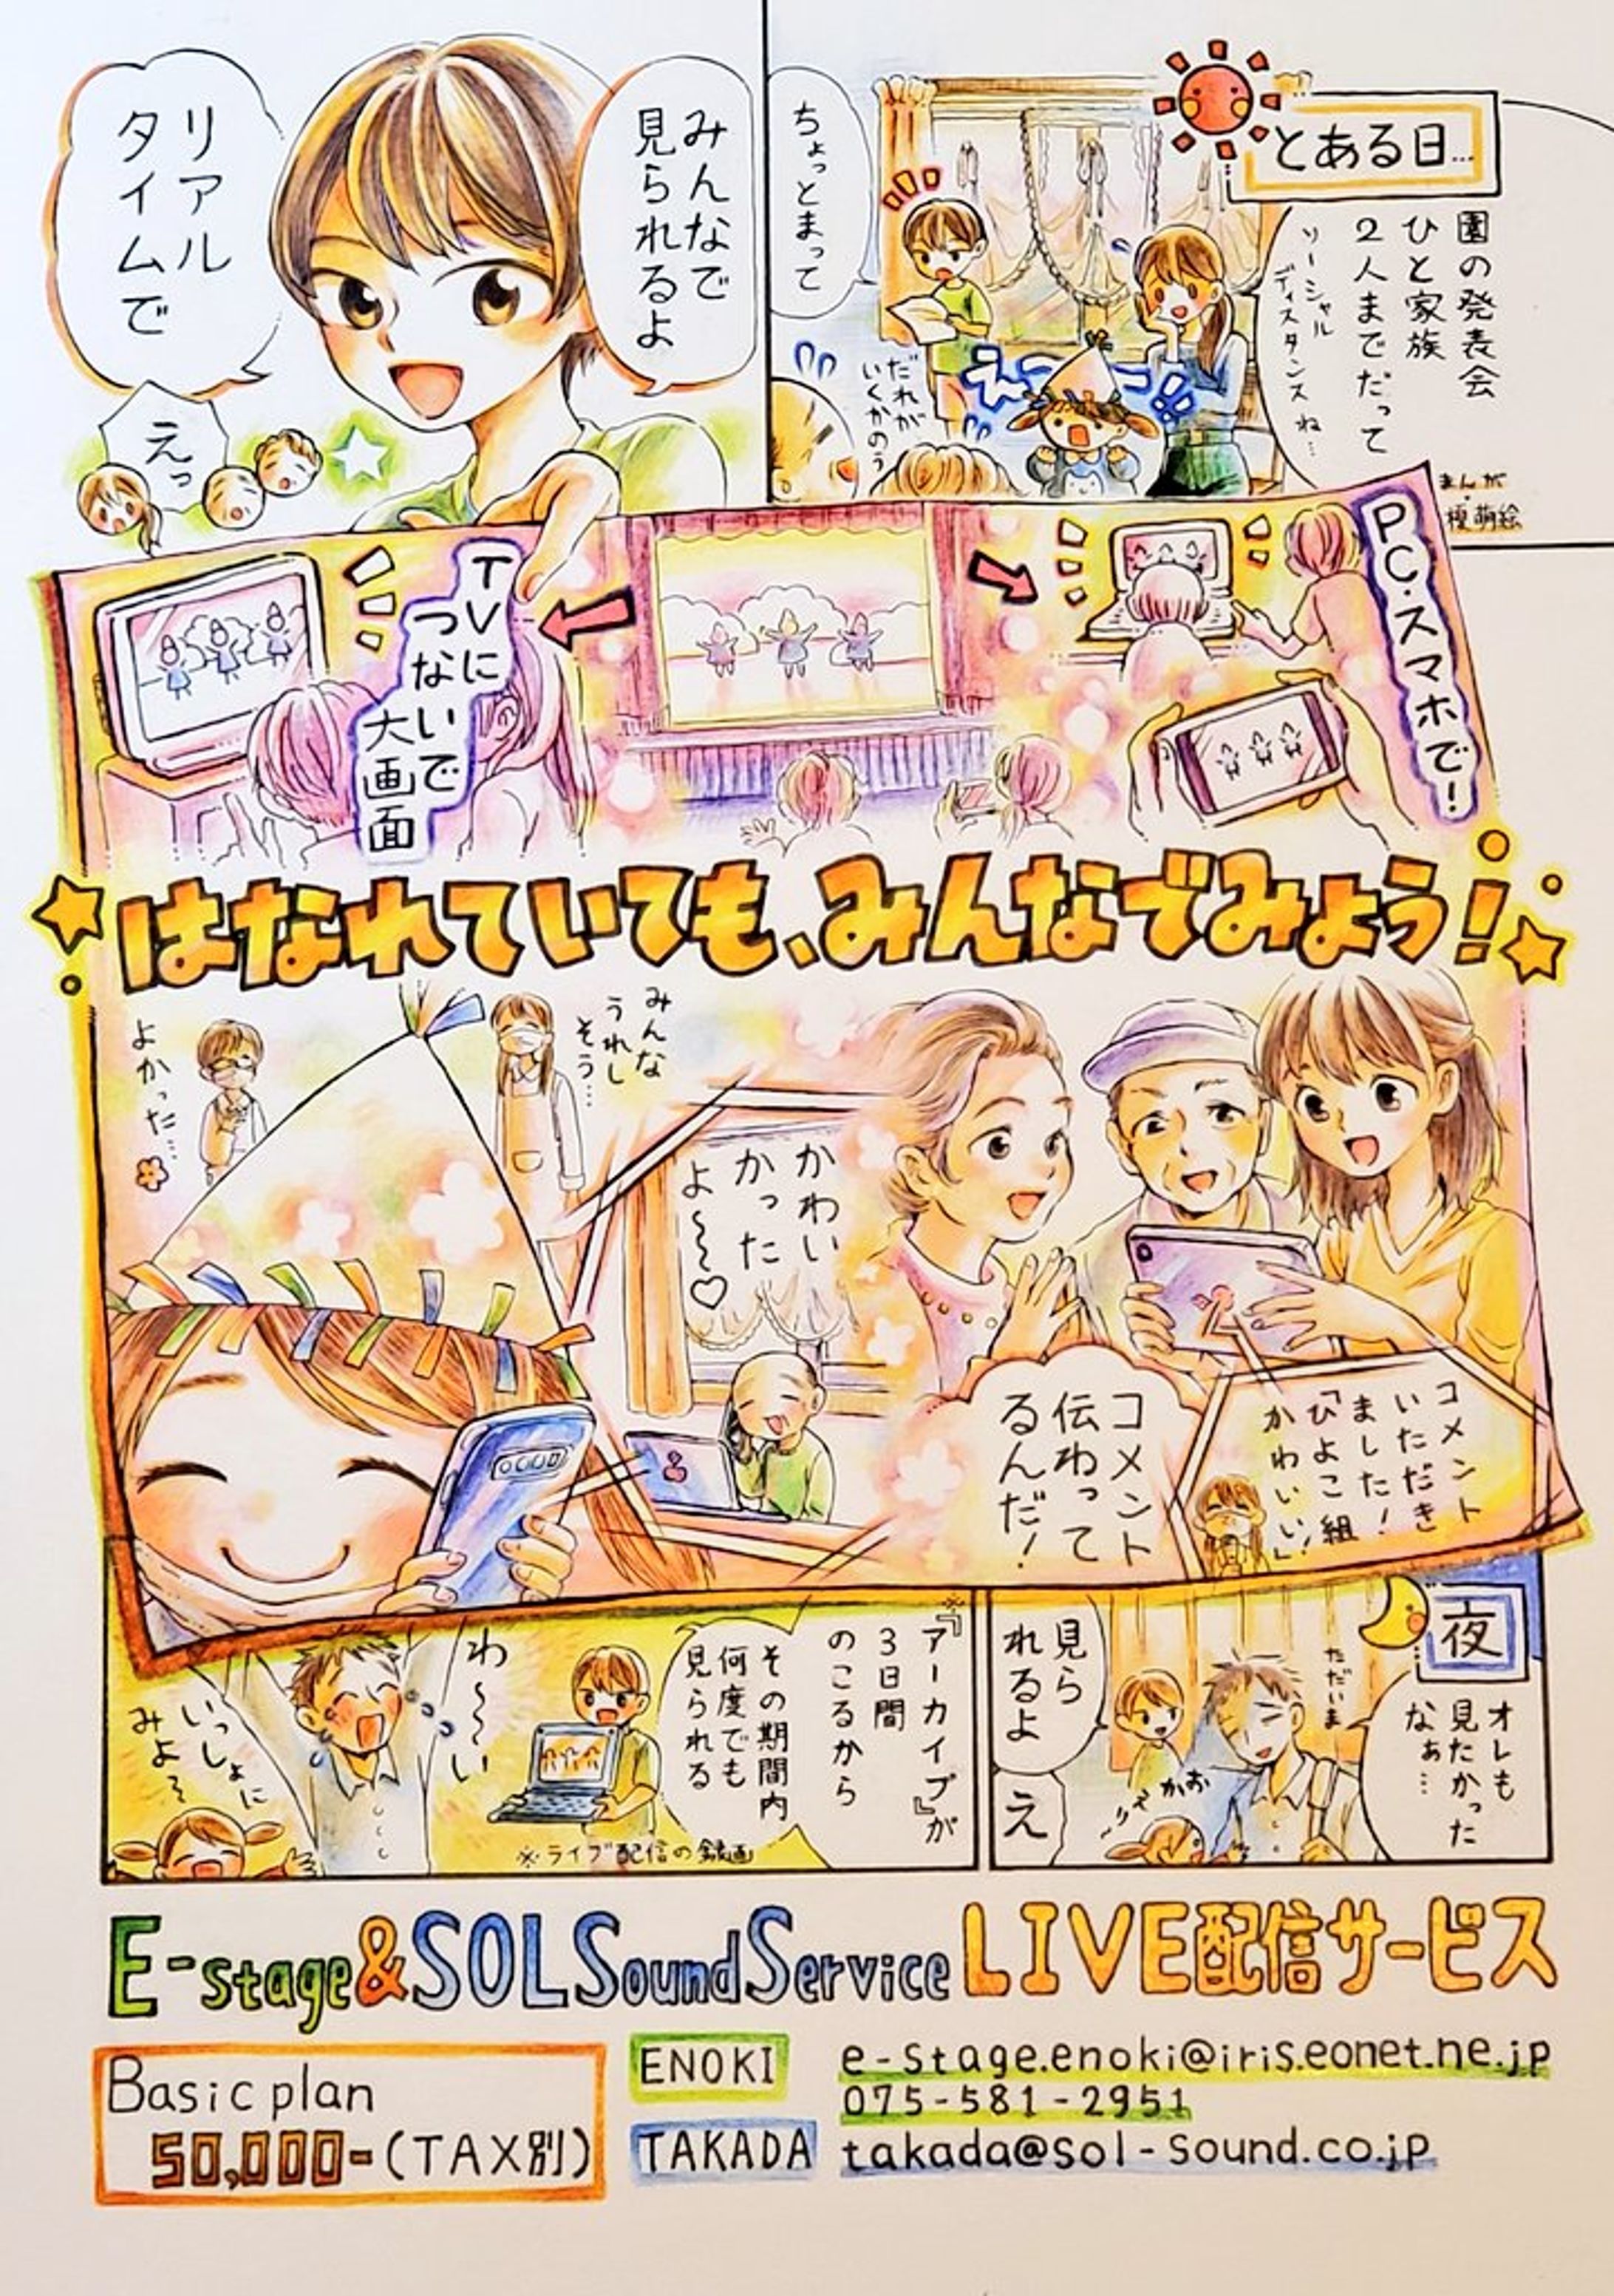 とある日…
園の発表会
ひと家族
2人までだって
ソーシャル
ディスタンスね…
えーーー!!
だれが
いくかのう
ちょっとまって
まんが・榎萌絵
みんなで
見られるよ
リアル
タイムで
えっ
PC・スマホで!
TVに
つないで
大画面
はなれていても、みんなでみよう!
コメント
いただき
ました!
「ひよこ組
かわいい!」
コメント
伝わって
るんだ!
かわい
かった
よ〜〜♡
みんな
うれし
そう…
よかった…
夜
オレも
見たかった
なぁ…
ただいま
かお
見ら
れるよ
え
※『アーカイブ』が
3日間
のこるから
その期間内
何度でも
見られる
※ライブ配信の録画
わ〜〜い
いっしょに
みよ〜
E-stage&SOLSoundService LIVE配信サービス
Basic plan
50,000-(TAX別)
ENOKI
e-stage.enoki@iris.eonet.ne.jp
075-581-2951
TAKADA
takada@sol-sound.co.jp